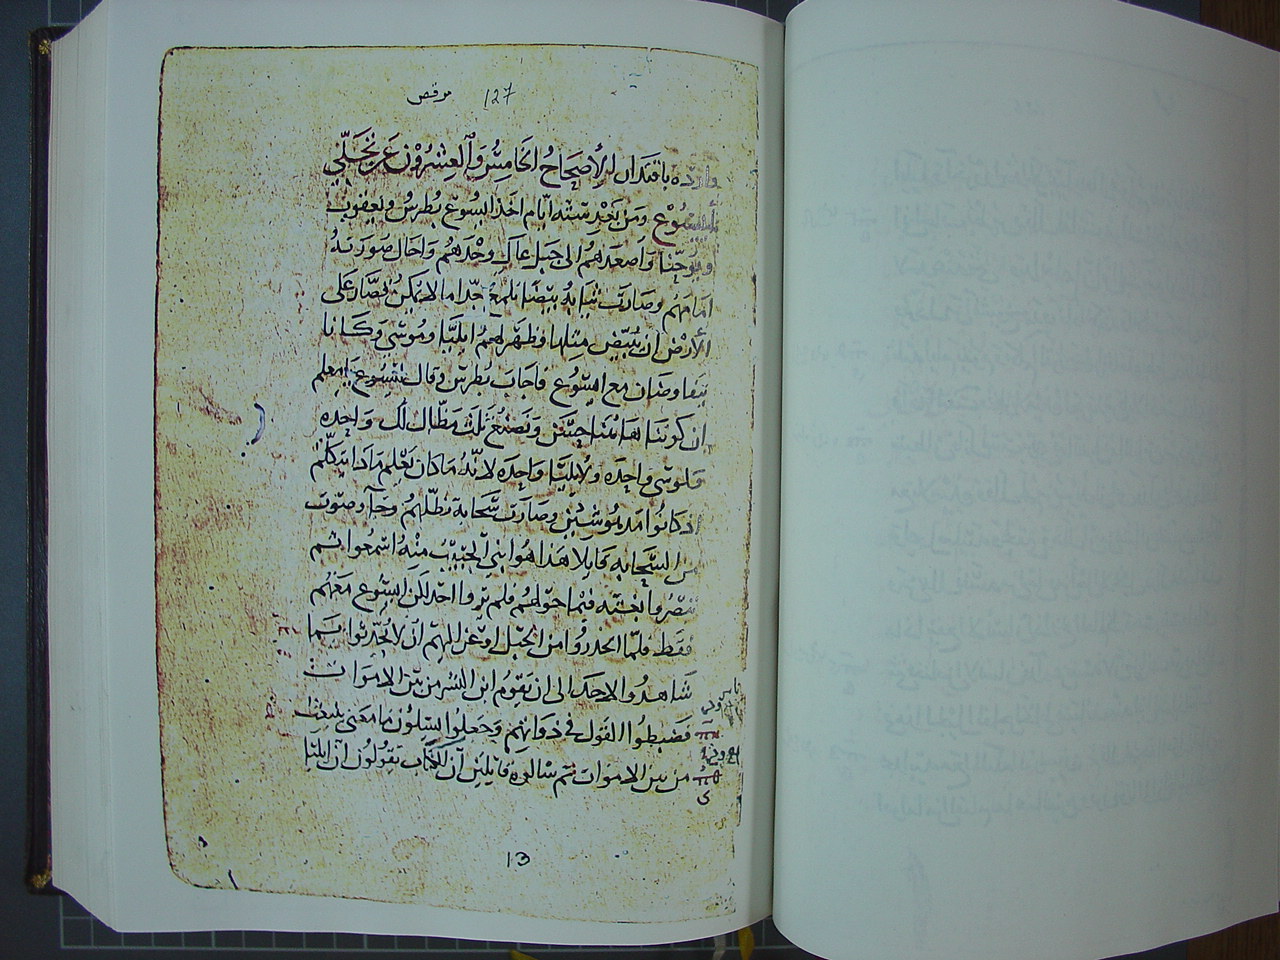 مرقص 127
وارده باقتدار الأصحاح الخامس والعشرون عن تجلي
اليسوع ومن بعد سته ايام اخذ اليسوع بطرس ويعقوب
ويوحنا واصعدهم الى جبل عال وحدهم واحال صورته
امامهم وصارت ثيابه بيضا تلمع جدا ما لا يمكن قصار على
الأرض ان يبيض مثلها فظهر لهم ايليا وموسي وكانا
يتفاوضان مع اليسوع فاجاب بطرس وقال لليسوع يا معلم
ان كوننا هاهنا حسن ونصنع ثلث مظال لك واحده
ولموسي واحده ولايليا واحده لانه ما كان يعلم ماذا يتكلم
اذ كانوا مدهوشين وصارت سحابة تظلهم وجآ صوت
من السحابه قايلا هذا هو ابني الحبيب منه اسمعوا ثم
تبصروا بغته فيما حولهم فلم يروا احد لكن اليسوع معهم
فقط فلما انحدروا من الجبل اوعز اليهم ان لا يحدثوا بما
شاهدوا لاحد الى ان يقوم ابن البشر من بين الاموات
فضبطوا القول في ذواتهم وجعلوا يسلون ما معني ينبعث
من بين الاموات ثم سالوه قايلين ان الكتاب يقولون ان ايليا
13